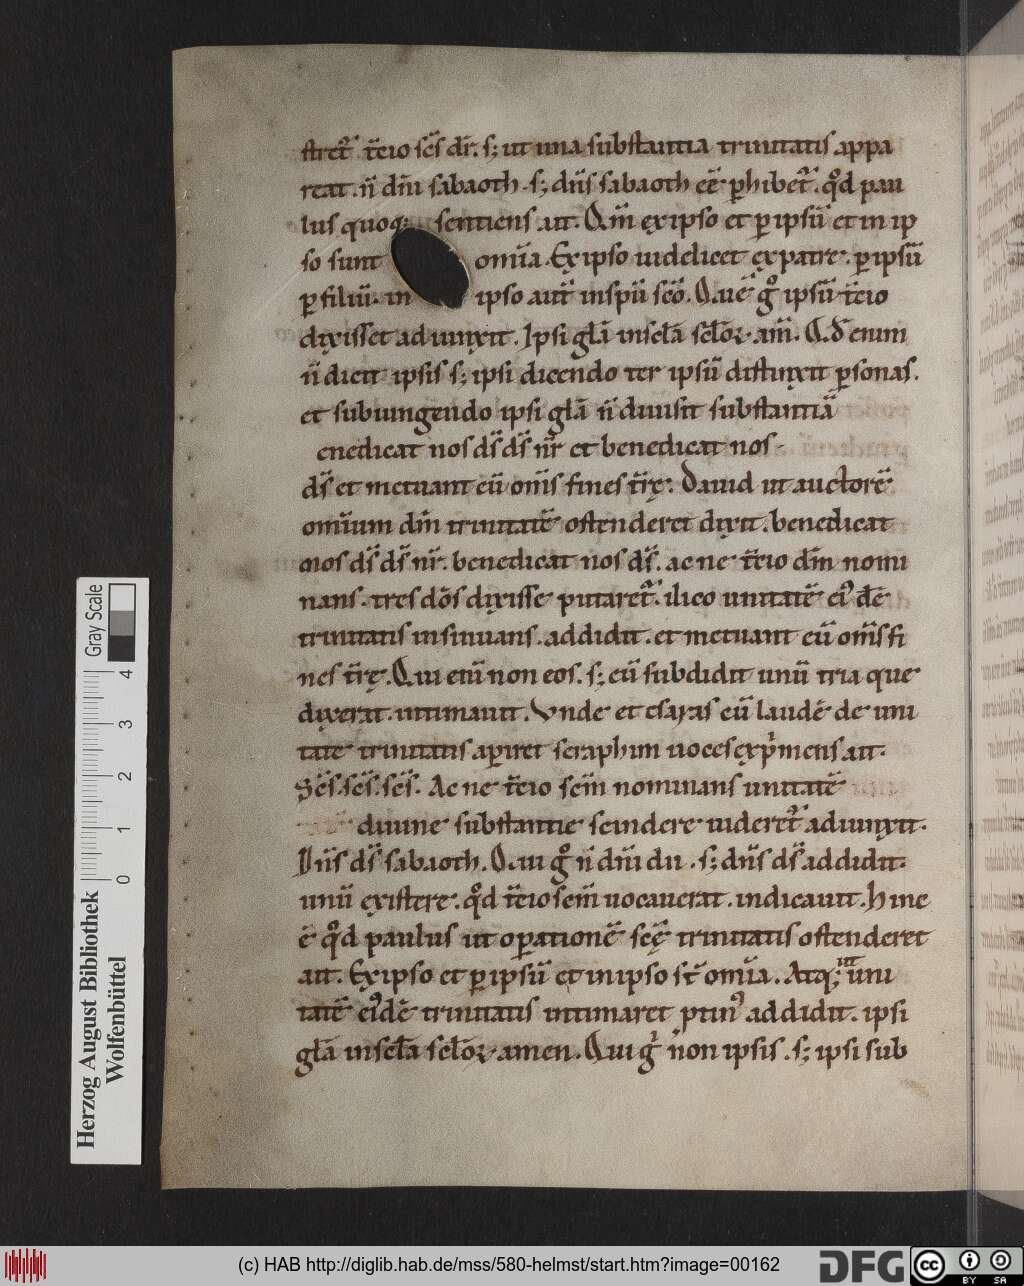 stret᷑ t̄cio sc̄s dr̄. s; ut una substantia trinitatis appa
reat. n̄ dn̄i sabaoth. s; dn̄s sabaoth eē ꝑhibet᷑. qd̊ pau
lus quoq; sentiens ait. Qm̄ ex ipso et ꝑ ipsū et in ip
so sunt om̄ia. Ex ipso uidelicet ex patre. ꝑ ipsū
ꝑ filiū. in ipso aut̄ in spū sc̄o. Q ue g̊ ipsū t̄cio
dixisset adiunxit. Ipsi glā in sclā sclōꝝ am̄.
n̄ dicit ipsis s; ipsi dicendo ter ipsū distinxit ꝑsonas.
et subiungendo ipsi glā n̄ diuisit substantiā
enedicat nos ds̄ ds̄ nr̄ et benedicat nos
ds̄ et metuant eū om̄s fines t̄rę. Dauid ut auctorē
omium dm̄ trinitatē ostenderet dixit. benedicat
nos ds̄ ds̄ nr̄. benedicat nos ds̄. ac ne t̄cio dm̄ nomi
nans. tres dōs dixisse putaret᷑. ilico unitatē eiꝰ dē
trinitatis insinuans. addidit. et metuant eū om̄s fi
nes t̄rę. Qui etiā non eos. s; eū subdidit unū tria que
dixerat. intimauit. Vnde et esayas eū laudē de uni
tate trinitatis aperiret seraphim uoces exp̍mens ait.
Sc̄s. sc̄s. sc̄s. Ac ne t̄cio scm̄ nominans unitatē
diuine substantie scindere uideret᷑ adiunxit.
Dn̄s ds̄ sabaoth. Qui g̊ n̄ dn̄i dii. s; dn̄s ds̄ addidit.
unū existere. qd̊ t̄cio scm̄ uocauerat. indicauit. Hinc
ē qd̊ paulus ut oꝑationē scē trinitatis ostenderet
ait. Ex ipso et ꝑ ipsū et in ipso st̄ om̄ia. Atq; ut uni
tatē eiꝰdē trinitatis intimaret ptinꝰ addidit. ipsi
glā in sclā sclōꝝ amen. Qui g̍ non ipsis. s; ipsi sub
Herzog August Bibliothek
Wolfenbüttel
0 1 2 3 4
Gray Scale
(c) HAB http://diglib.hab.de/mss/580-helmst/start.htm?image=00162
DFG
cc
BY SA